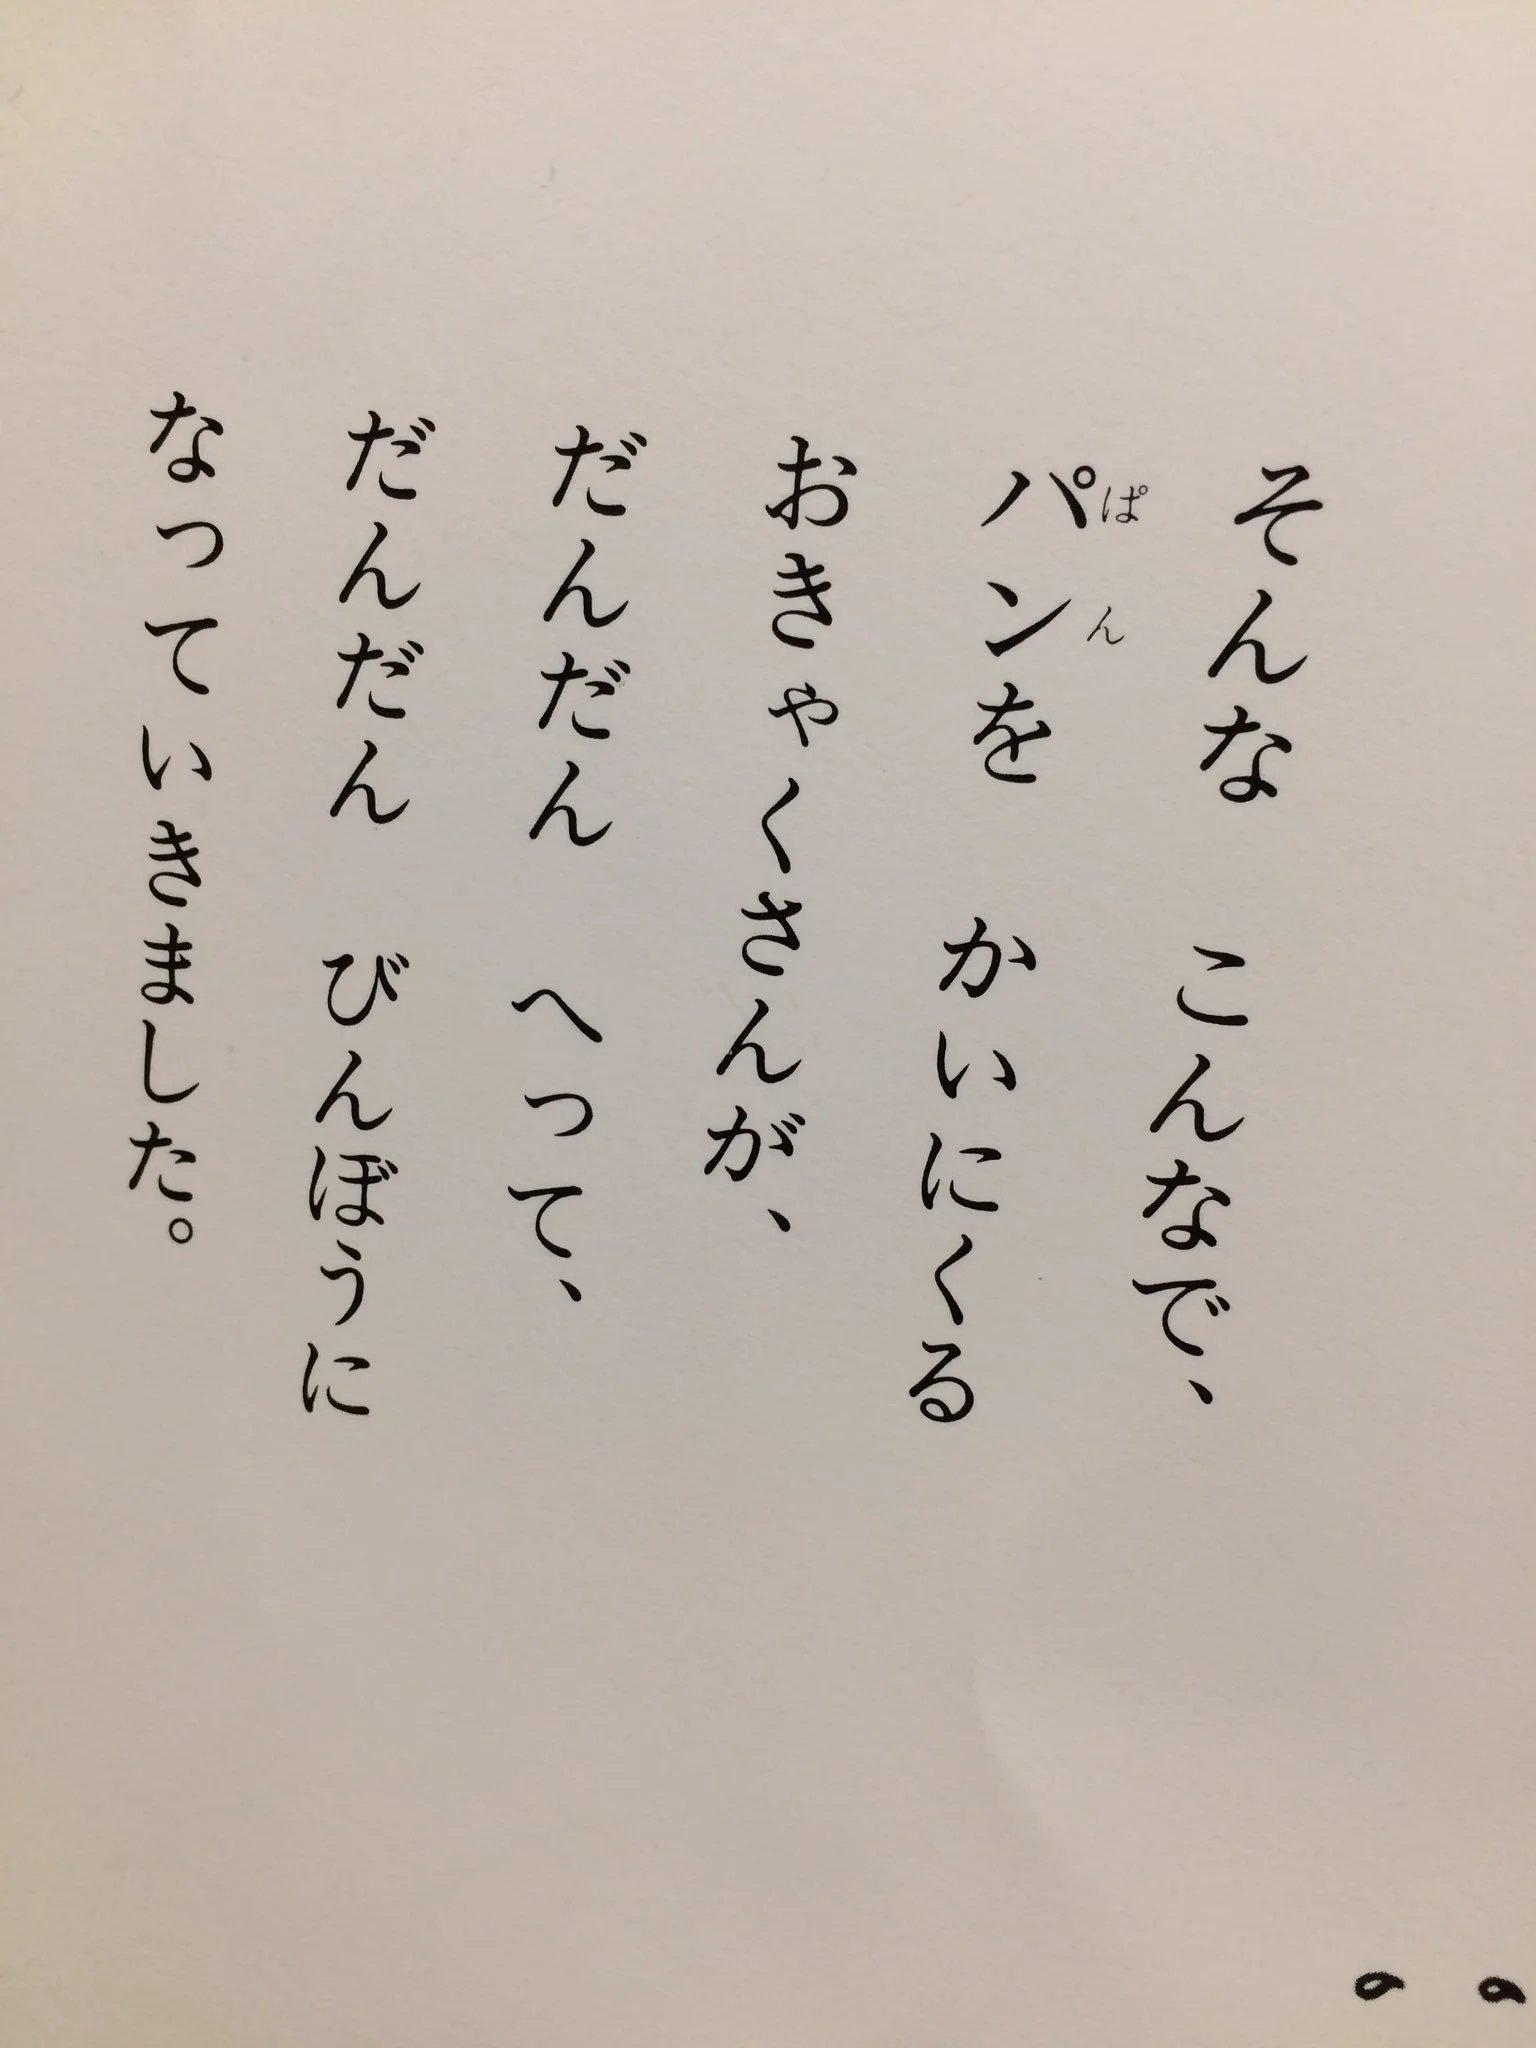 そんな こんなで、
パンを かいにくる
おきゃくさんが、
だんだん へって、
だんだん びんぼうに
なっていきました。
ぱん